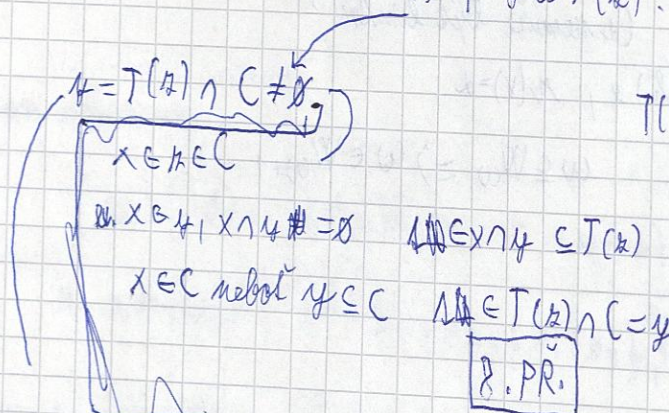 y = T(z) ∩ C ≠ ∅
T(
x ∈ z ∈ C
x ∈ y, x ∩ y = ∅ ∈ x ∩ y ⊆ T(z)
x ∈ C neboť y ⊆ C ∈ T(z) ∩ C = y
8. PŘ.